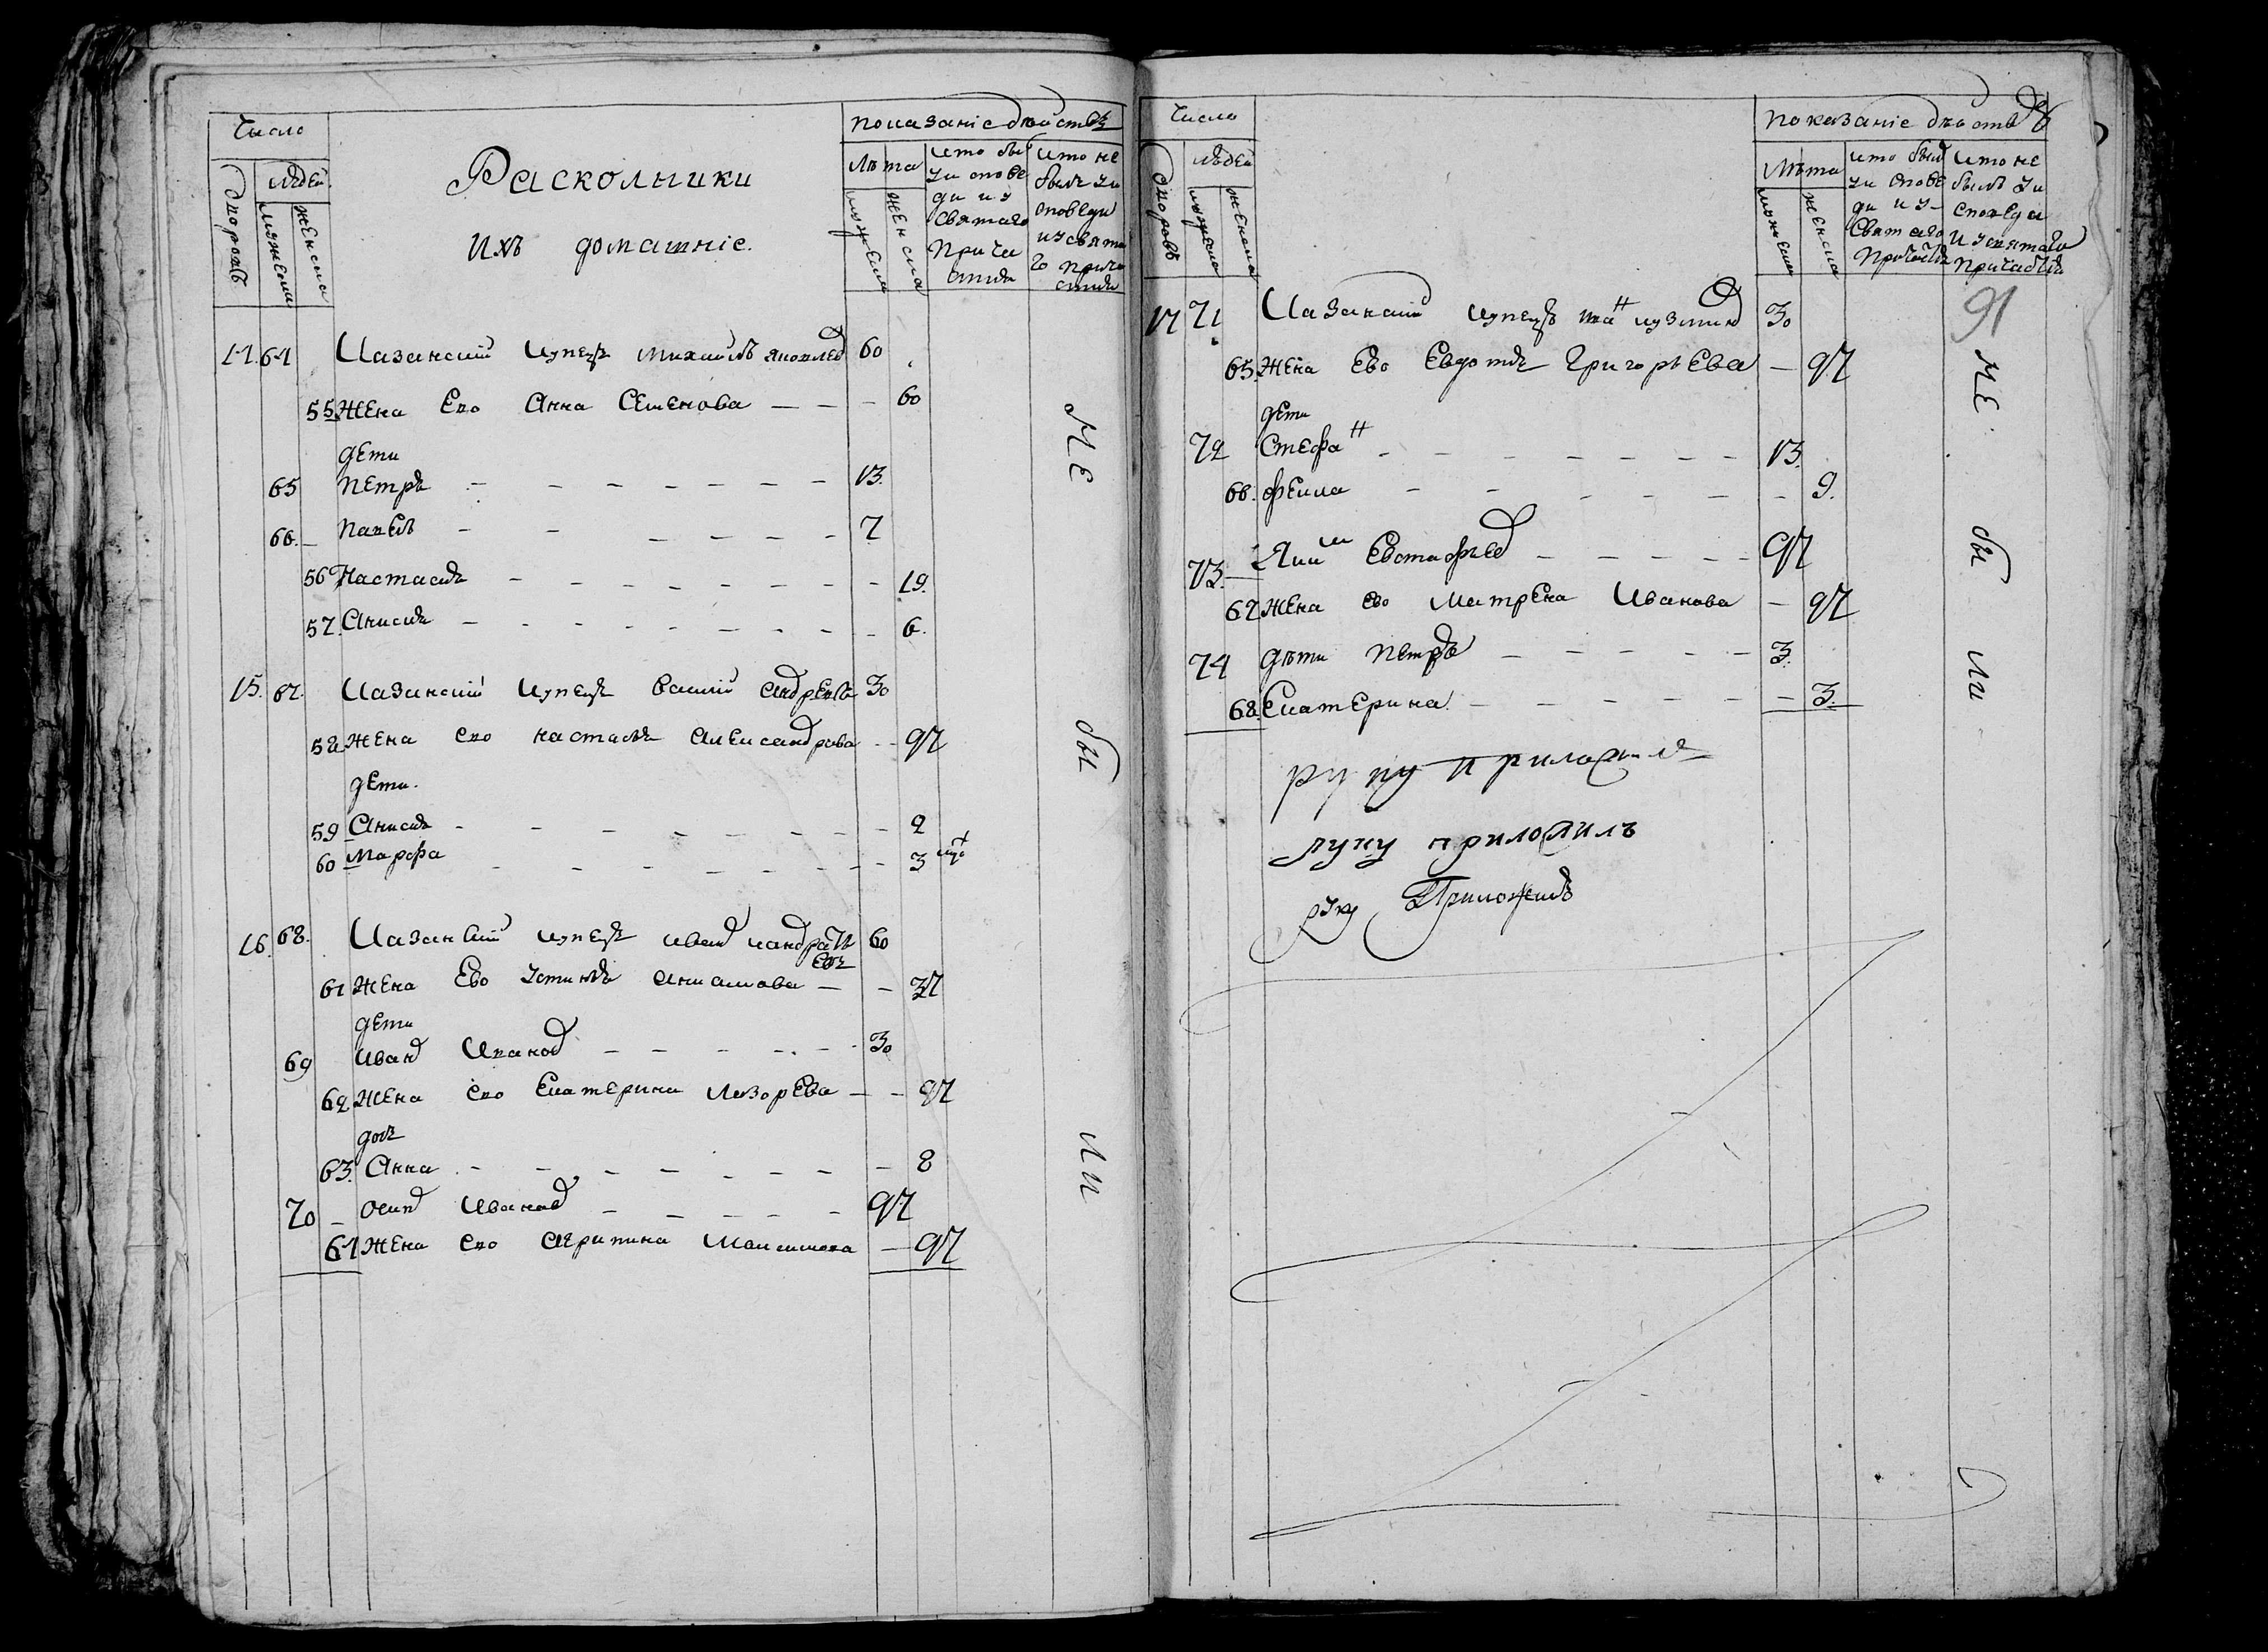 Число
дворовъ
людей
мужеска
женска
Раскольники
ихъ домашніе.
показаніе действъ
лѣта
мужеска
женска
кто бы
у исповѣ
ди и у
святаго
прича
стия
кто не
былъ у и
сповѣди
и у свята
го прича
стия
14. 64 Казанский купецъ михайлъ яковлев 60
55 жена ево Анна Семенова — — — 60
дети
65 петръ — — — — — — — 13.
66. — павелъ — — — — — — 7
56 Настасия — — — — — — — 19.
57. Анисия — — — — — — — — 6.
15. 67. Казанский купецъ васили андреевъ 30
58 жена ево настасия александрова — — 27
дети.
59 Анисия — — — — — — — — 2
60 марфа — — — — — — — — 3
16. 68. Казанский купецъ иван кандрать 60
евъ
61 жена ево устинья — — 37
дети
69 иван Иванов — — — — — 30
62 жена ево Екатерина лазорева — — 27
дочь
63. Анна — — — — — — — — 8
70 — осип иванов — — — — — 27
64 жена ево агрипина максимова — 27
не были
Число
дворовъ
людей
мужеска
женска
показаніе действъ
лѣта
мужеска
женска
кто был
у испове
ди и у
святаго
причастия
кто не
былъ у и
споведи
и у святаго
причастия
91
17 71 Казанский купецъ кузмин 30
65. жена ево Евдотия Григорьева — 27
дети
72 Стефан — — — — — — — 13.
66. фекла — — — — — — — 9.
73. — Евстафьев — — — — 27
67 жена ево матрена Иванова — 27
74 дѣти петръ — — — — — 3.
68. Екатерина — — — — — — 3.
не были
руку приложил
руку приложилъ
руку Приложилъ